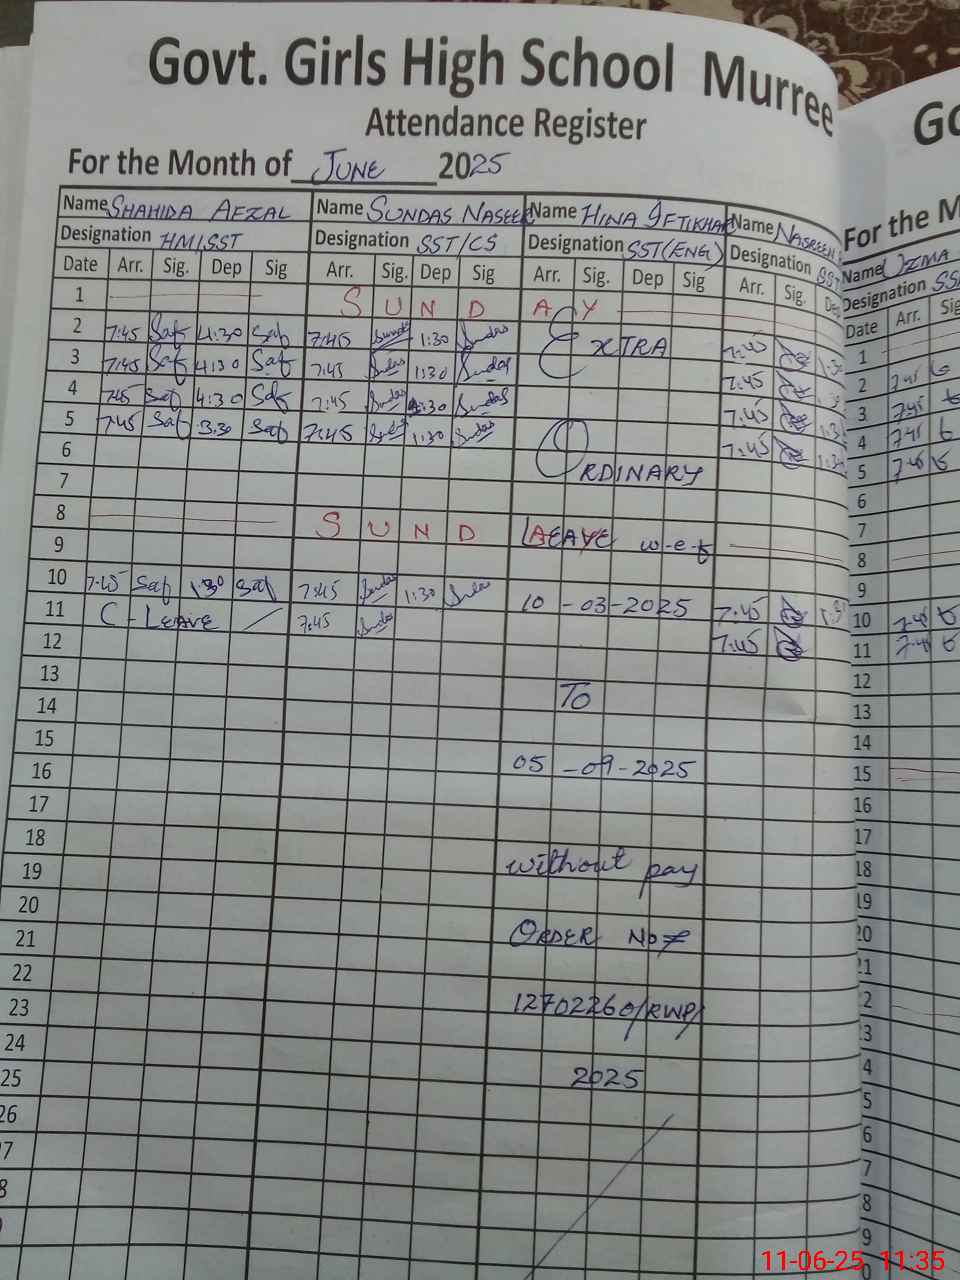 Govt. Girls High School Murree
Attendance Register
For the Month of JUNE 2025
Name SHAHIDA AFZAL Name SUNDAS NASEER Name HINA IFTIKHAR Name NASREEN
Designation HM/SST Designation SST/CS Designation SST(ENG) Designation SST
Date Arr. Sig. Dep Sig Arr. Sig. Dep Sig Arr. Sig. Dep Sig Arr. Sig. De
1 S U N D A Y
2 7:45 Saf 4:30 Saf 7:45 Sundas 1:30 Sundas EXTRA 7:45 1:30
3 7:45 Saf 4:30 Saf 7:45 Sundas 1:30 Sundas 7:45
4 7:45 Saf 4:30 Saf 7:45 Sundas 1:30 Sundas 7:45 1:3
5 7:45 Saf 3:30 Saf 7:45 Sundas 1:30 Sundas ORDINARY 7:45 1:30
6
7
8 S U N D A Y
9 LEAVE w-e-f
10 7:45 Saf 1:30 Saf 7:45 Sundas 1:30 Sundas 10-03-2025 7:45 1:3
11 C-LEAVE 7:45 Sundas 7:45
12
13
14 TO
15
16 05-09-2025
17
18
19 without pay
20
21 ORDER NO#
22
23 12702260/RWP/
24
25 2025
26
7
8
9
Go
For the M
Name UZMA
Designation SS
Date Arr. Sig
1
2 7:45
3 7:45
4 7:45
5 7:45
6
7
8
9
10 7:45
11 7:45
12
13
14
15
16
17
18
19
20
21
2
3
4
5
6
7
8
9
11-06-25 11:35